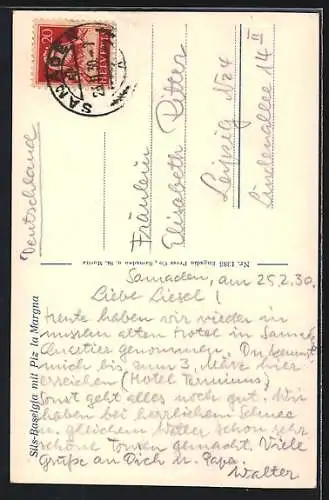 20
HELVETIA
SAMADEN
Fräulein
Elisabeth Ritter
Leipzig N24
Lindenallee 14 III
Deutschland
Nr. 1386 Engadin Press Co., Samaden u. St. Moritz
Sils-Baselgia mit Piz la Margna
Samaden, am 25.2.30.
Liebe Liesel!
Heute haben wir wieder in
unserem alten Hotel in Samaden
Quartier genommen. Du kannst
mich bis zum 3. März hier
erreichen (Hotel Terminus)
Sonst geht alles noch gut. Wir
haben bei herrlichem Schnee
u. gleichem Wetter schon sehr
schöne Touren gemacht. Viele
Grüße an Dich u. Papa.
Walter